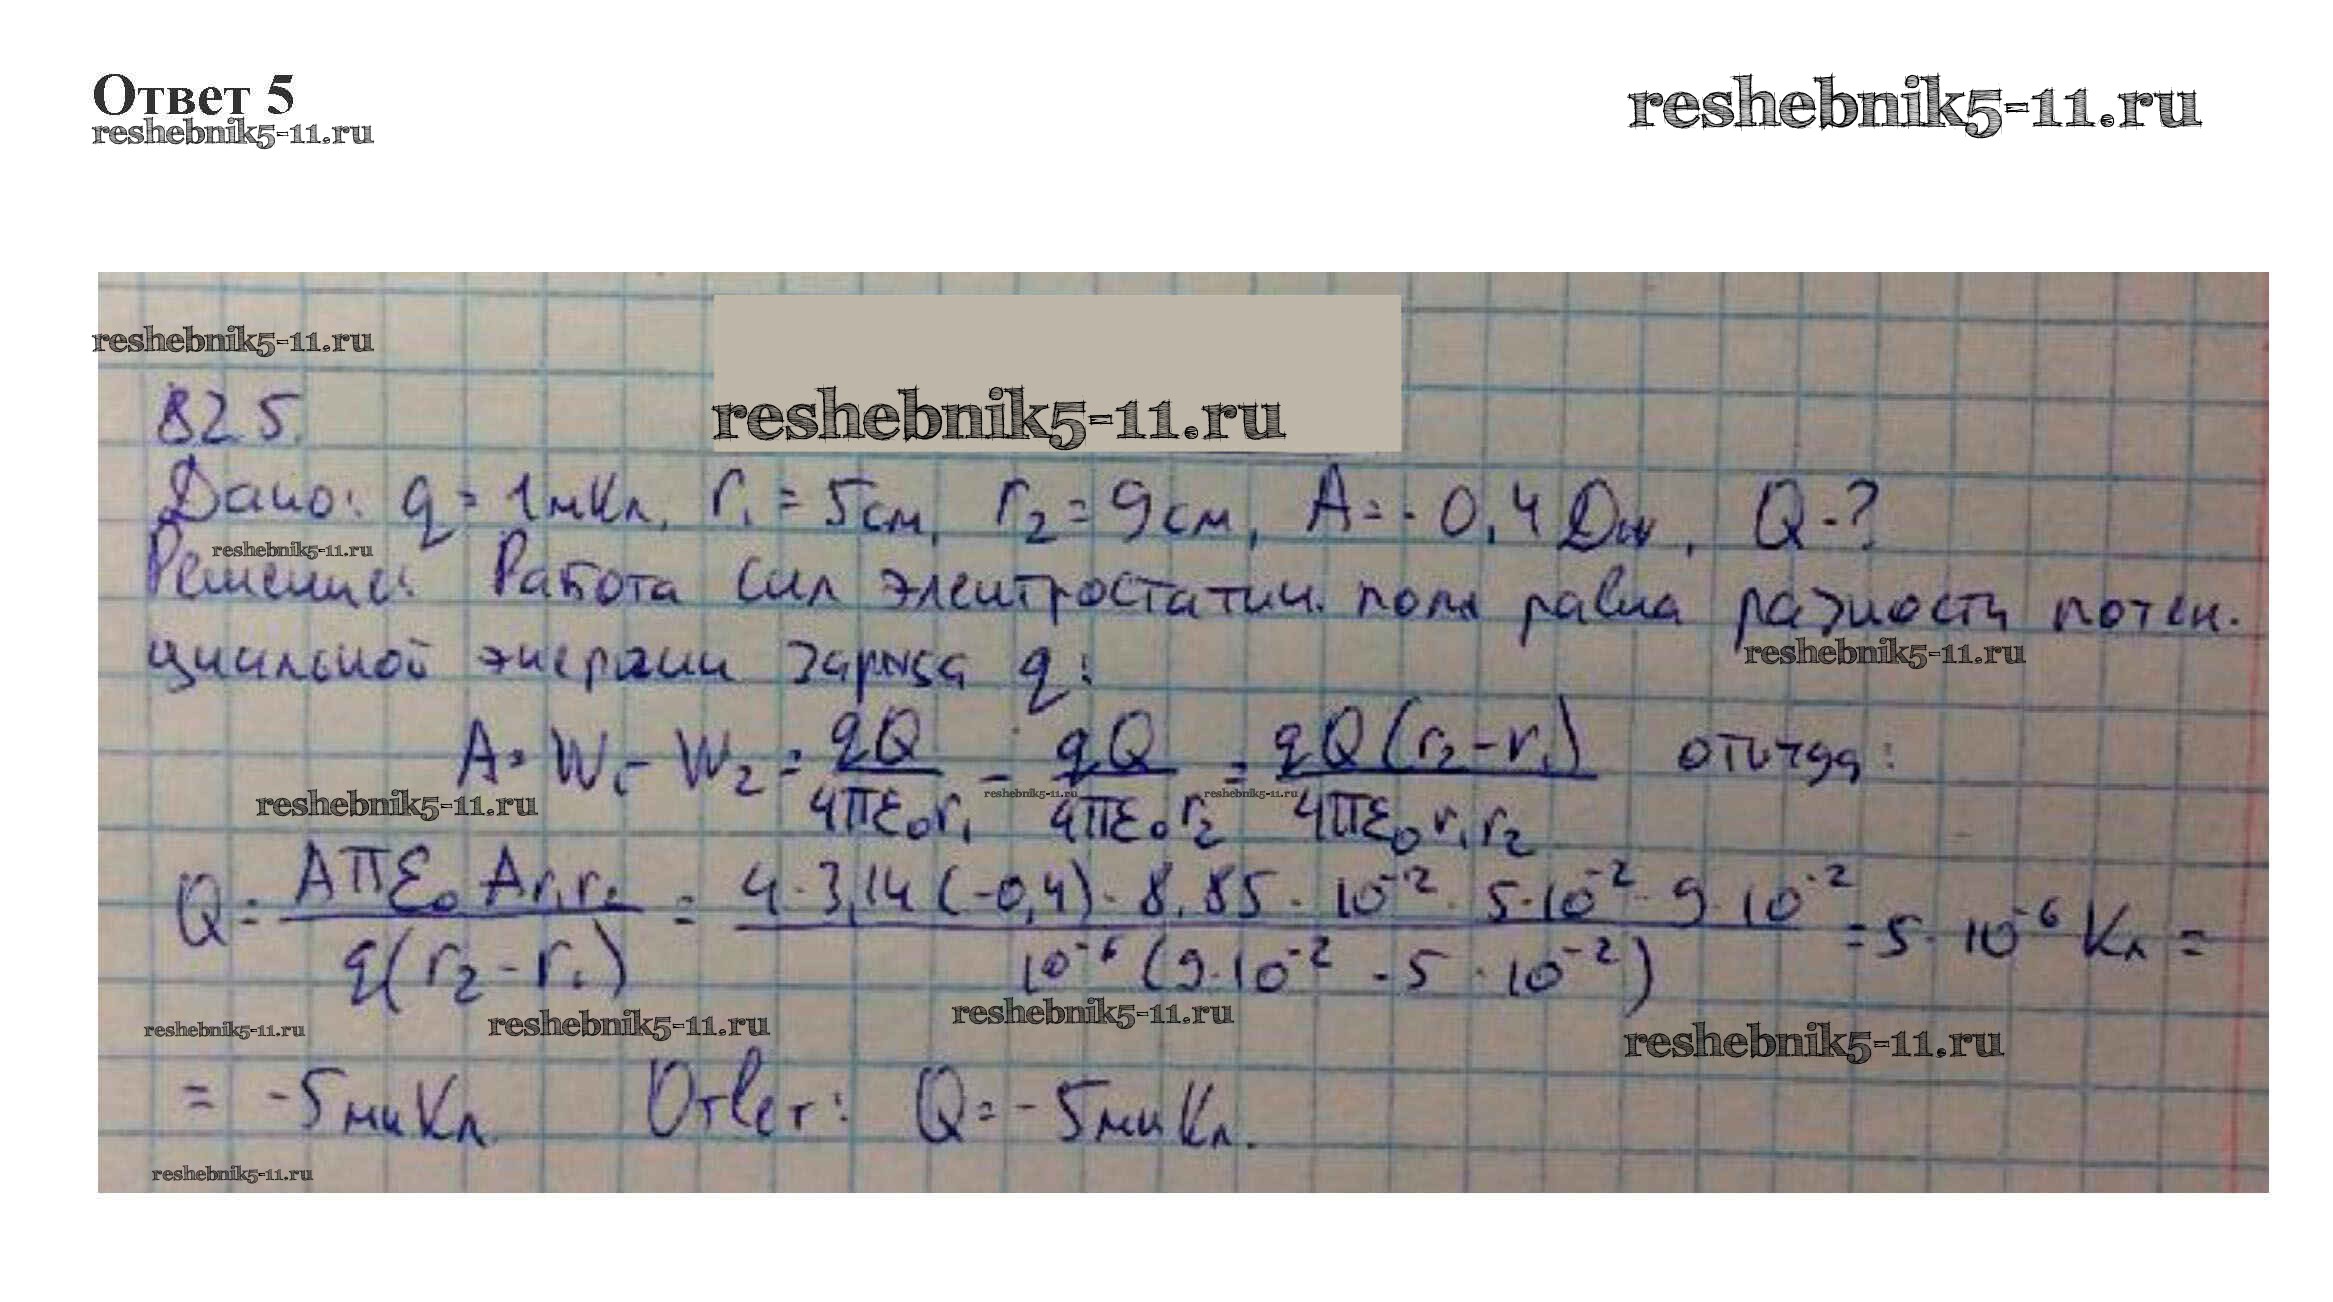 Ответ 5
reshebnik5-11.ru
reshebnik5-11.ru
reshebnik5-11.ru
825.
reshebnik5-11.ru
Дано: q = 1 мКл, r₁ = 5 см, r₂ = 9 см, A = -0,4 Дж, Q - ?
reshebnik5-11.ru
Решение: Работа сил электростатич. поля равна разности потен.
циальной энергии заряда q:
reshebnik5-11.ru
A = W₁ - W₂ = qQ/4πε₀r₁ - qQ/4πε₀r₂ = qQ(r₂-r₁)/4πε₀r₁r₂ откуда:
reshebnik5-11.ru
reshebnik5-11.ru
reshebnik5-11.ru
Q = Aπε₀Ar₁r₂/q(r₂-r₁) = 4·3,14(-0,4)·8,85·10⁻¹²·5·10⁻²·9·10⁻²/10⁻⁶(9·10⁻² - 5·10⁻²) = 5·10⁻⁶ Кл =
reshebnik5-11.ru
reshebnik5-11.ru
reshebnik5-11.ru
reshebnik5-11.ru
= -5 мкКл Ответ: Q = -5 мкКл.
reshebnik5-11.ru